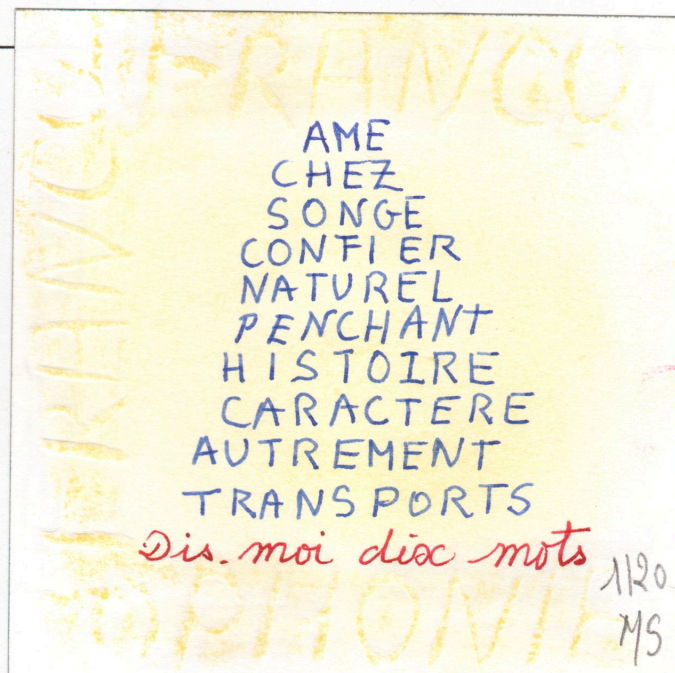 FRANCO
AME
CHEZ
SONGE
CONFIER
NATUREL
PENCHANT
HISTOIRE
CARACTERE
AUTREMENT
TRANSPORTS
Dis-moi dix mots
1/20
MS